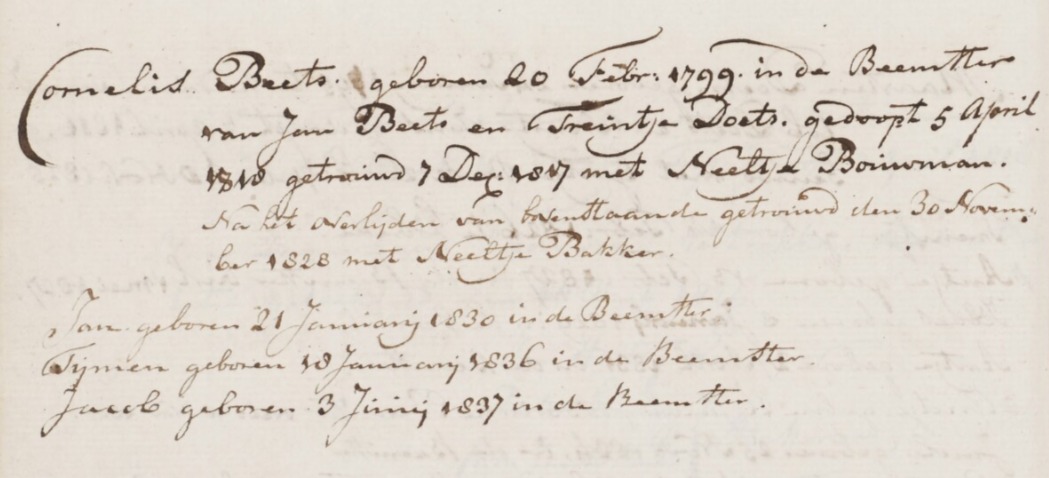 Cornelis Beets. geboren 20 Febr: 1799. in de Beemster
van Jan Beets en Treintje Doets. gedoopt 5 April
1818 getrouwd 7 Dec: 1817 met Neeltje Bouwman.
Na het overlijden van bovenstaande getrouwd den 30 Novem-
ber 1828 met Neeltje Bakker.
Jan geboren 21 Januarij 1830 in de Beemster.
Tijmen geboren 18 Januarij 1836 in de Beemster.
Jacob geboren 3 Junij 1837 in de Beemster.